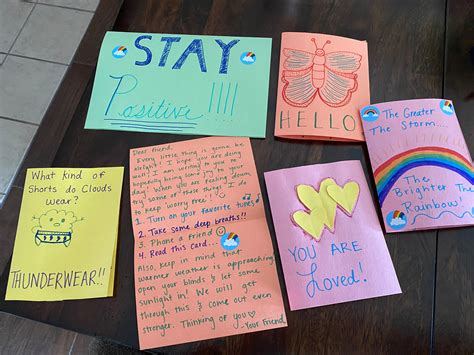 STAY
Positive !!!!
HELLO
The Greater
The Storm....
The Brighter The
Rainbow!
What kind of
Shorts do Clouds
Wear?
THUNDERWEAR!!
Dear friend,
Every little thing is gonna be
alright! I hope you are doing
well! I am writing to you in
hopefully bring some joy to your
day! When you are feeling down,
try some of these things I do
to keep worry free!
1. Turn on your favorite tunes
2. Take some deep breaths!!
3. Phone a Friend
4. Read this card...
Also, keep in mind that
warmer weather is approaching
open your blinds & let some
sunlight in! We will get
through this & come out even
stronger. Thinking of you
-Your Friend
YOU ARE
Loved!